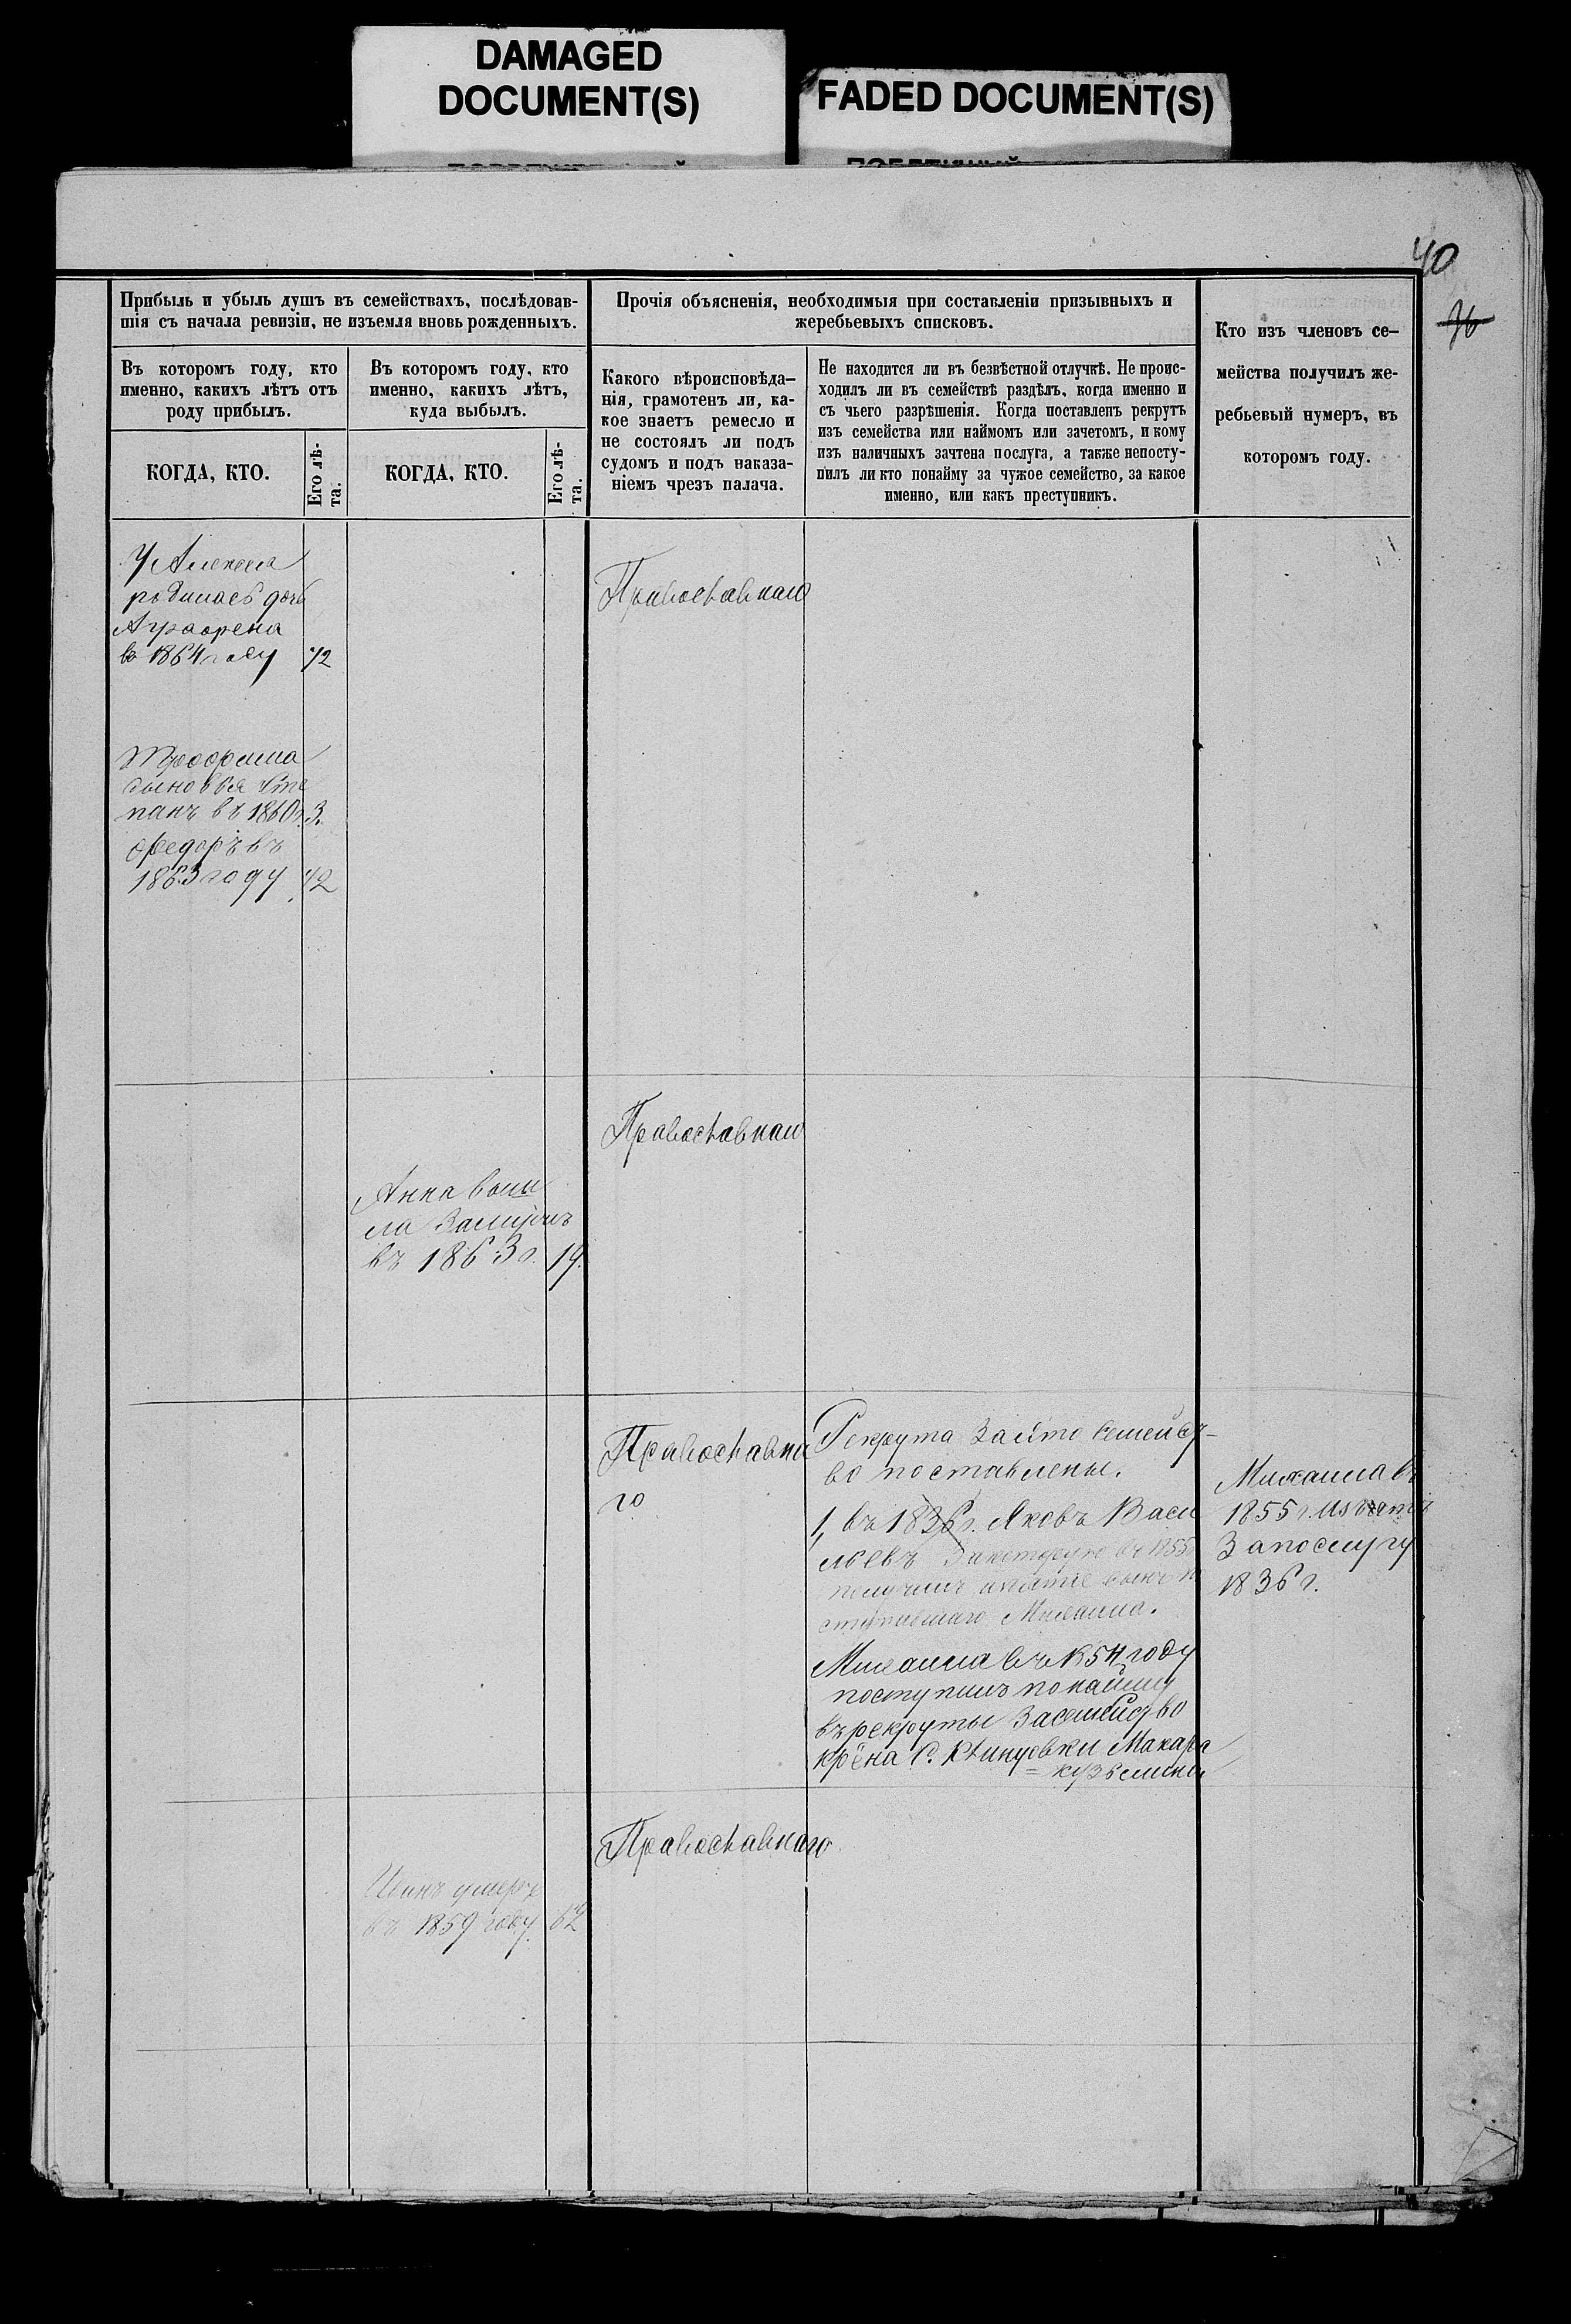 DAMAGED
DOCUMENT(S)
FADED DOCUMENT(S)
40
36
Прибыль и убыль душъ въ семействахъ, послѣдовав-
шія съ начала ревизіи, не изъемля вновь рожденныхъ.
Въ которомъ году, кто
именно, какихъ лѣтъ отъ
роду прибылъ.
КОГДА, КТО.
Его лѣ-
та.
Въ которомъ году, кто
именно, какихъ лѣтъ,
куда выбылъ.
КОГДА, КТО.
Его лѣ-
та.
Прочія объясненія, необходимыя при составленіи призывныхъ и
жеребьевыхъ списковъ.
Какого вѣроисповѣда-
нія, грамотенъ ли, ка-
кое знаетъ ремесло и
не состоялъ ли подъ
судомъ и подъ наказа-
ніемъ чрезъ палача.
Не находится ли въ безвѣстной отлучкѣ. Не проис-
ходилъ ли въ семействѣ раздѣлъ, когда именно и
съ чьего разрѣшенія. Когда поставленъ рекрутъ
изъ семейства или наймомъ или зачетомъ, и кому
изъ наличныхъ зачтена послуга, а также непосту-
пилъ ли кто понайму за чужое семейство, за какое
именно, или какъ преступникъ.
Кто изъ членовъ се-
мейства получилъ же-
ребьевый нумеръ, въ
которомъ году.
У Алексея
родилась дочь
Аграфена
въ 1864 году 1/2
Православнаго
Трофима
сыновья Сте
панъ въ 1860 г. 3.
Федоръ въ
1863 году 1/2
Православнаго
Анна выш
ла замужъ
въ 1863 г. 19.
Православна
го
Рекрута за это семейст-
во поставлены.
1, въ 1836 г. Яковъ Васи
льевъ за которую въ 1855
получилъ сынъ
Михаила.
Михаила въ 1854 году
поступилъ по найму
въ рекруты за семейство
кр-на С. Макара
Кузьмина
Михаила въ
1855 г. изъятъ
За послугу
1836 г.
Православнаго
Иванъ умеръ
въ 1859 году. 62